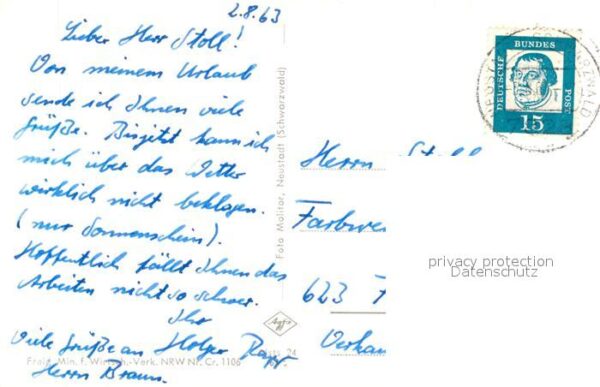 2.8.63
Lieber Herr Stoll!
Von meinem Urlaub
sende ich Ihnen viele
Grüße. Bisjetzt kann ich
mich über das Wetter
wirklich nicht beklagen.
(nur Sonnenschein).
Hoffentlich fällt Ihnen das
Arbeiten nicht so schwer.
Ihr
Viele Grüße an Holger
Herrn Braun.
Foto Molitor, Neustadt (Schwarzwald)
Agfa
Freig. Min. f. Wirtsch.-Verk. NRW Nr. Cr. 1106
24
DEUTSCHE BUNDES POST
15
Herrn Stoll
Farbwe
623 F
Verkau
privacy protection
Datenschutz